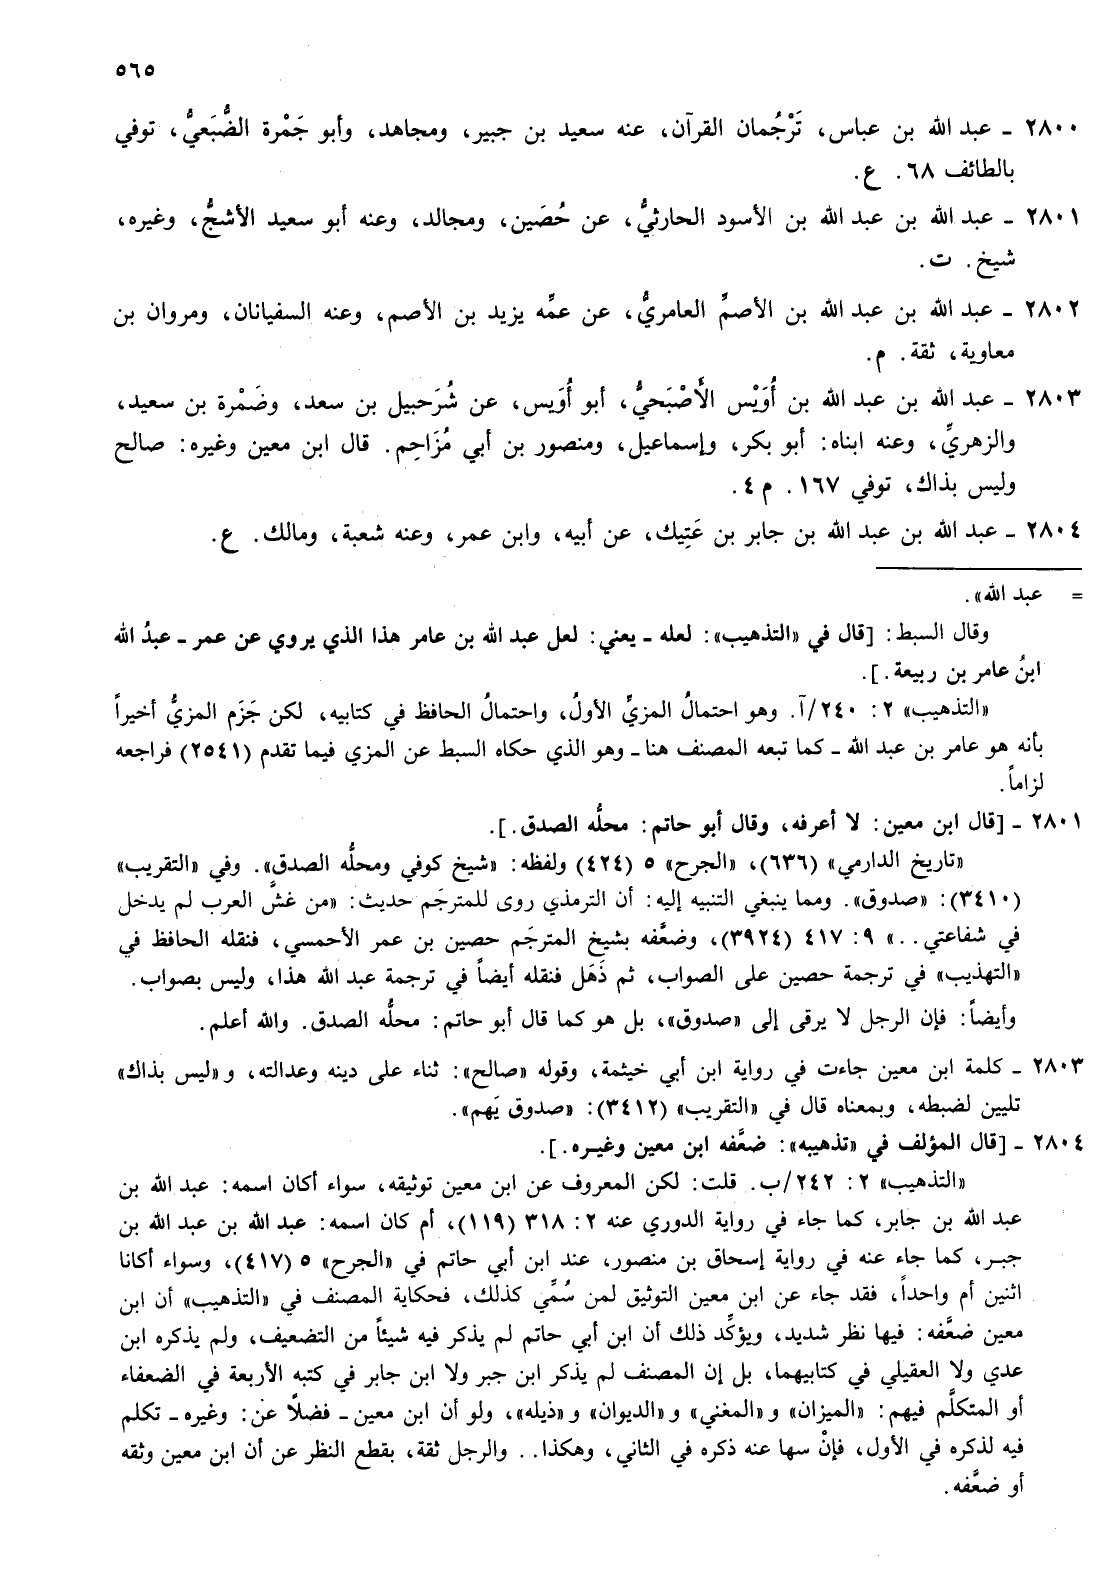 ٥٦٥
٢٨٠٠ ـ عبد الله بن عباس، تَرْجُمان القرآن، عنه سعيد بن جبير، ومجاهد، وأبو جَمْرة الضُّبَعيُّ، توفي
بالطائف ٦٨. ع.
٢٨٠١ ـ عبد الله بن عبد الله بن الأسود الحارثيُّ، عن حُصَين، ومجالد، وعنه أبو سعيد الأشجُّ، وغيره،
شيخ. ت.
٢٨٠٢ ـ عبد الله بن عبد الله بن الأصمِّ العامريُّ، عن عمِّه يزيد بن الأصم، وعنه السفيانان، ومروان بن
معاوية، ثقة. م.
٢٨٠٣ ـ عبد الله بن عبد الله بن أُوَيْس الأَصْبَحيُّ، أبو أُوَيس، عن شُرَحبيل بن سعد، وضَمْرة بن سعيد،
والزهريِّ، وعنه ابناه: أبو بكر، وإسماعيل، ومنصور بن أبي مُزَاحِم. قال ابن معين وغيره: صالح
وليس بذاك، توفي ١٦٧. م ٤.
٢٨٠٤ ـ عبد الله بن عبد الله بن جابر بن عَتِيك، عن أبيه، وابن عمر، وعنه شعبة، ومالك. ع.
= عبد الله».
وقال السبط: [قال في «التذهيب»: لعله ـ يعني: لعل عبد الله بن عامر هذا الذي يروي عن عمر ـ عبدُ الله
ابنُ عامر بن ربيعة.].
«التذهيب» ٢: ٢٤٠/آ. وهو احتمالُ المزيِّ الأولُ، واحتمالُ الحافظ في كتابيه، لكن جَزَم المزيُّ أخيراً
بأنه هو عامر بن عبد الله ـ كما تبعه المصنف هنا ـ وهو الذي حكاه السبط عن المزي فيما تقدم (٢٥٤١) فراجعه
لزاماً.
٢٨٠١ ـ [قال ابن معين: لا أعرفه، وقال أبو حاتم: محلُّه الصدق.].
«تاريخ الدارمي» (٦٣٦)، «الجرح» ٥ (٤٢٤) ولفظه: «شيخ كوفي ومحلُّه الصدق». وفي «التقريب»
(٣٤١٠): «صدوق». ومما ينبغي التنبيه إليه: أن الترمذي روى للمترجَم حديث: «من غشَّ العرب لم يدخل
في شفاعتي..» ٩: ٤١٧ (٣٩٢٤)، وضعَّفه بشيخ المترجَم حصين بن عمر الأحمسي، فنقله الحافظ في
«التهذيب» في ترجمة حصين على الصواب، ثم ذَهَل فنقله أيضاً في ترجمة عبد الله هذا، وليس بصواب.
وأيضاً: فإن الرجل لا يرقى إلى «صدوق»، بل هو كما قال أبو حاتم: محلُّه الصدق. والله أعلم.
٢٨٠٣ ـ كلمة ابن معين جاءت في رواية ابن أبي خيثمة، وقوله «صالح»: ثناء على دينه وعدالته، و«ليس بذاك»
تليين لضبطه، وبمعناه قال في «التقريب» (٣٤١٢): «صدوق يَهم».
٢٨٠٤ ـ [قال المؤلف في «تذهيبه»: ضعَّفه ابن معين وغيره.].
«التذهيب» ٢: ٢٤٢/ب. قلت: لكن المعروف عن ابن معين توثيقه، سواء أكان اسمه: عبد الله بن
عبد الله بن جابر، كما جاء في رواية الدوري عنه ٢: ٣١٨ (١١٩)، أم كان اسمه: عبد الله بن عبد الله بن
جبر، كما جاء عنه في رواية إسحاق بن منصور، عند ابن أبي حاتم في «الجرح» ٥ (٤١٧)، وسواء أكانا
اثنين أم واحداً، فقد جاء عن ابن معين التوثيق لمن سُمِّي كذلك، فحكاية المصنف في «التذهيب» أن ابن
معين ضعَّفه: فيها نظر شديد، ويؤكِّد ذلك أن ابن أبي حاتم لم يذكر فيه شيئاً من التضعيف، ولم يذكره ابن
عدي ولا العقيلي في كتابيهما، بل إن المصنف لم يذكر ابن جبر ولا ابن جابر في كتبه الأربعة في الضعفاء
أو المتكلَّم فيهم: «الميزان» و«المغني» و«الديوان» و«ذيله»، ولو أن ابن معين ـ فضلاً عن: وغيره ـ تكلم
فيه لذكره في الأول، فإنْ سها عنه ذكره في الثاني، وهكذا.. والرجل ثقة، بقطع النظر عن أن ابن معين وثقه
أو ضعَّفه.